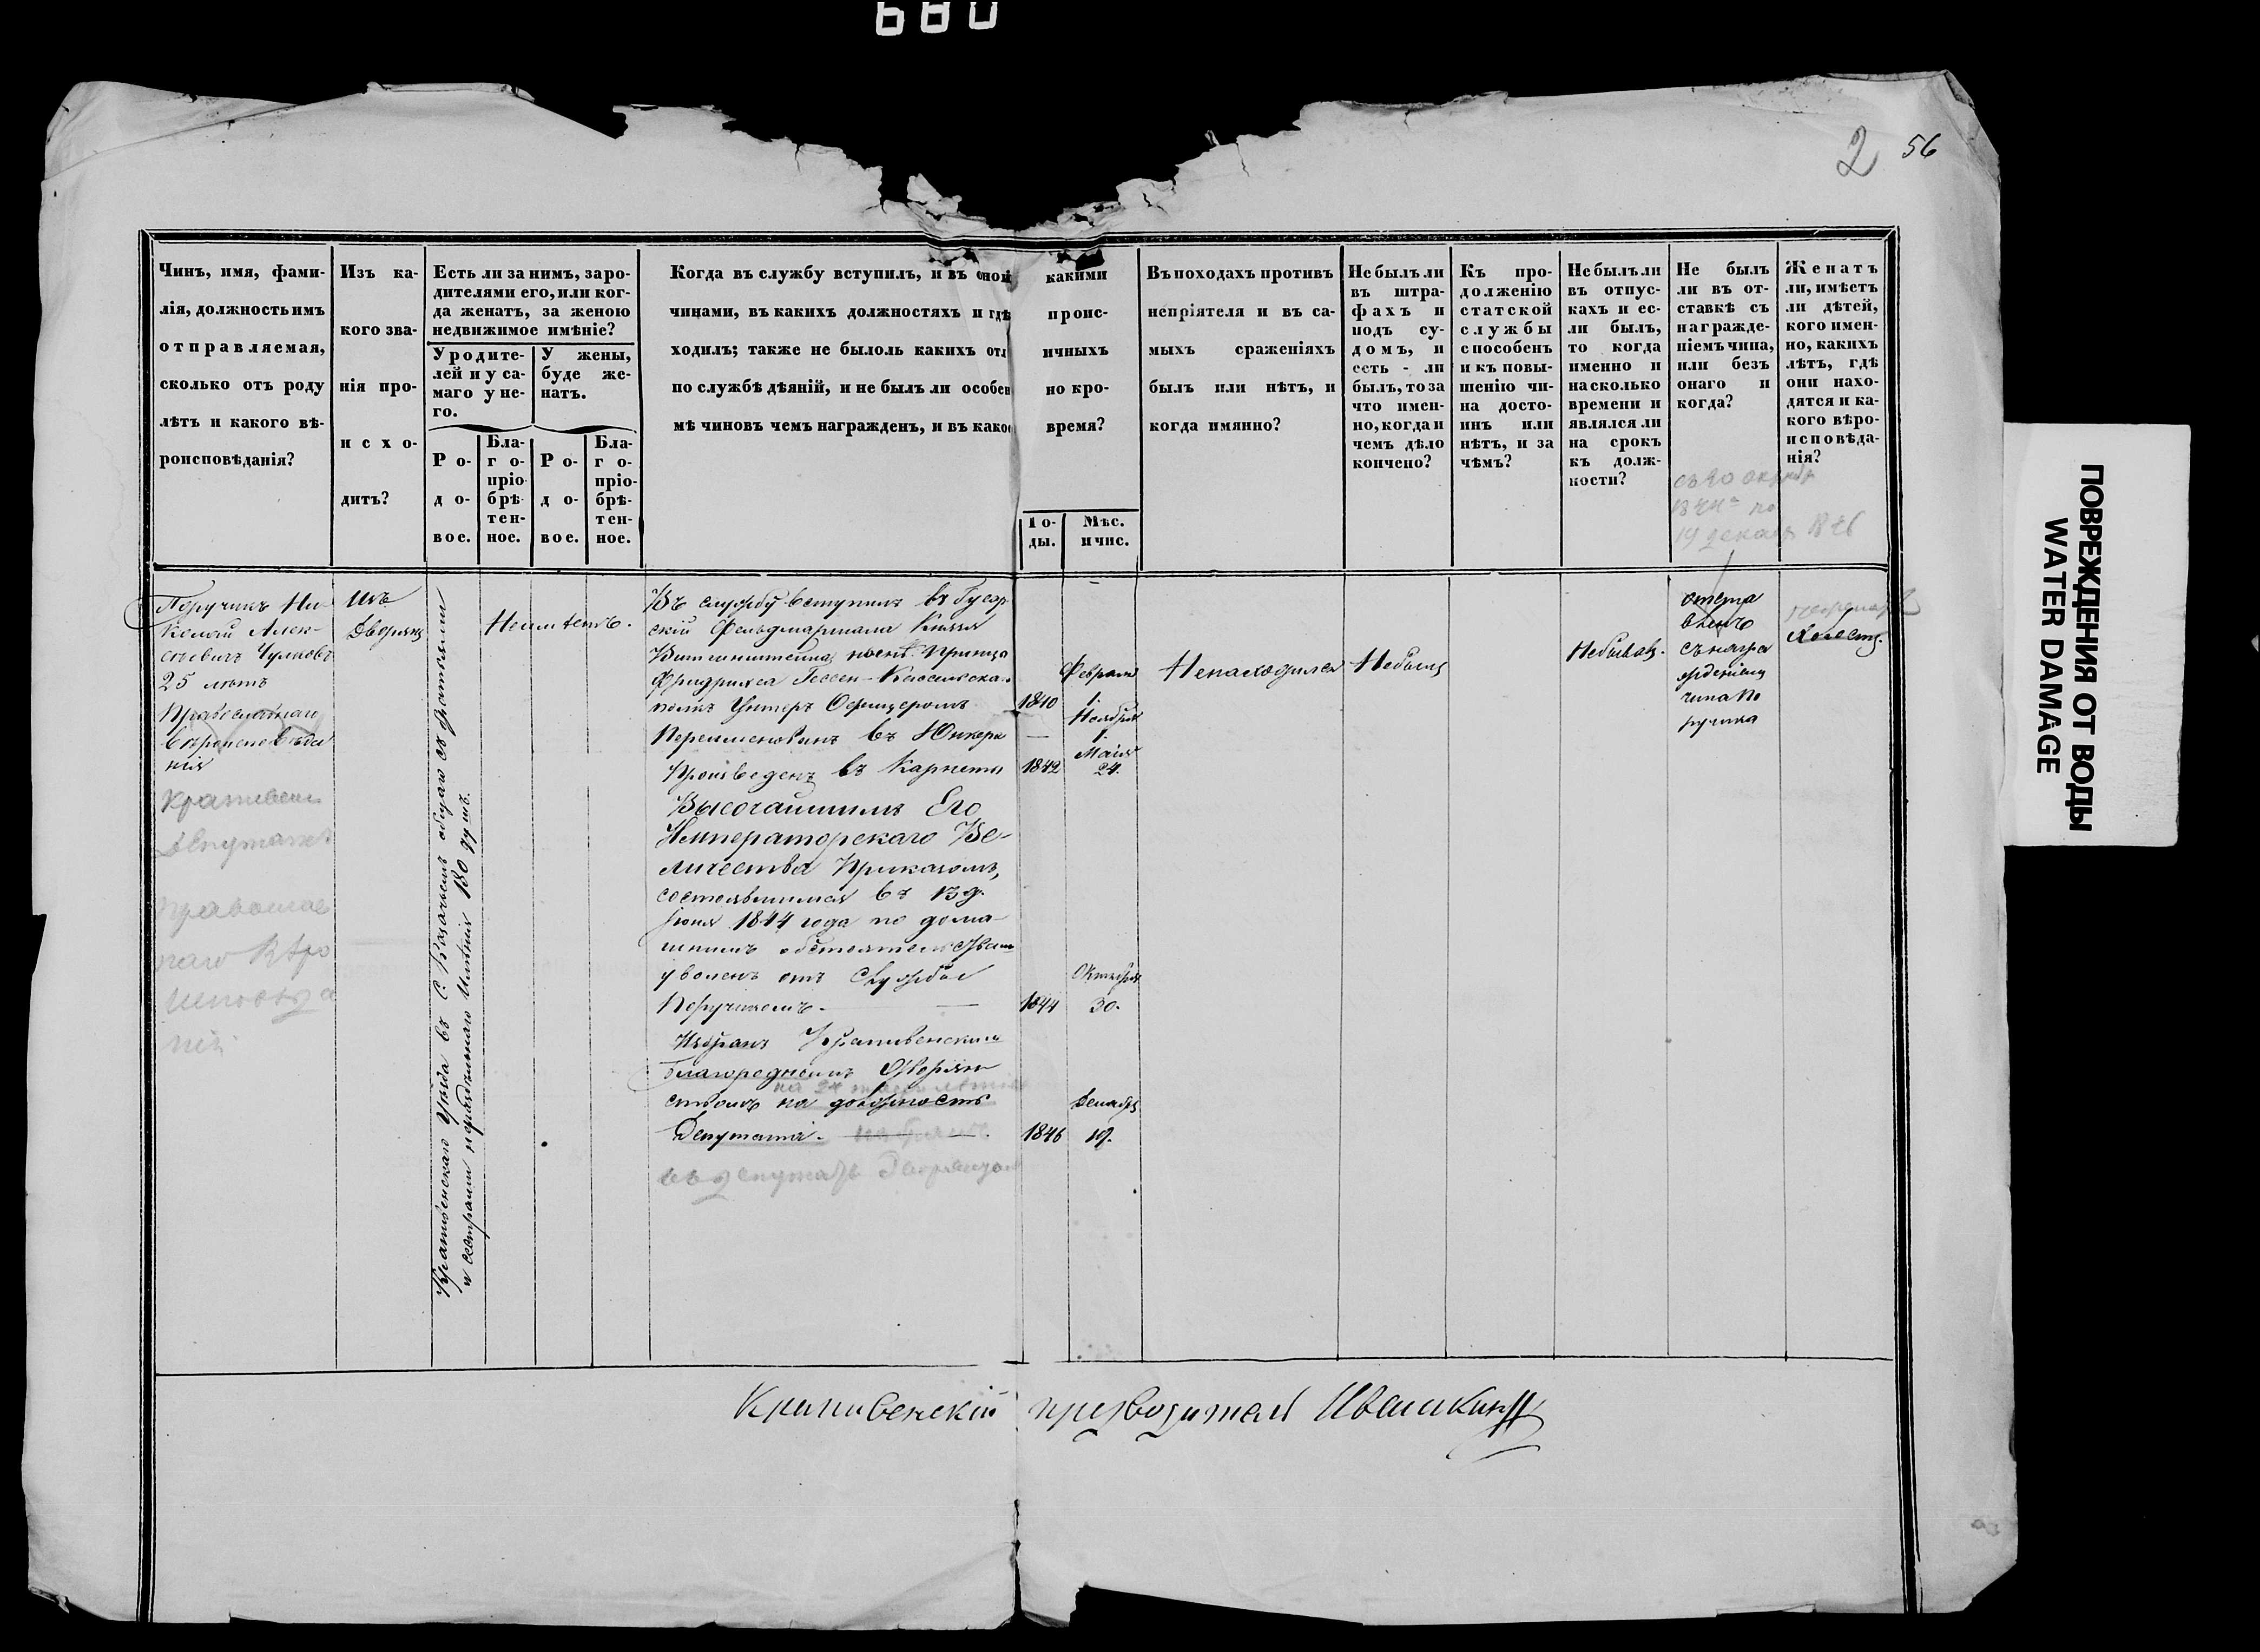 680
2 56
Чинъ, имя, фами-
лія, должность имъ
отправляемая,
сколько отъ роду
лѣтъ и какого вѣ-
роисповѣданія?
Изъ ка-
кого зва-
нія про-
исхо-
дитъ?
Есть ли за нимъ, за ро-
дителями его, или ког-
да женатъ, за женою
недвижимое имѣніе?
У родите-
лей и у са-
маго у не-
го.
У жены,
буде же-
натъ.
Ро-
до-
вое.
Бла-
го-
прiо-
брѣ-
тен-
ное.
Ро-
до-
вое.
Бла-
го-
прiо-
брѣ-
тен-
ное.
Когда въ службу вступилъ, и въ оной какими
чинами, въ какихъ должностяхъ и гдѣ проис-
ходилъ; также не было ль какихъ отличныхъ
по службѣ дѣяній, и не былъ ли особенно кро-
мѣ чиновъ чемъ награжденъ, и въ какое время?
Го-
ды.
Мѣс.
и чис.
Въ походахъ противъ
непріятеля и въ са-
мыхъ сраженіяхъ
былъ или нѣтъ, и
когда имянно?
Не былъ ли
въ штра-
фахъ и
подъ су-
домъ, и
есть-ли
былъ, то за
что имен-
но, когда и
чемъ дѣло
кончено?
Къ про-
долженію
статской
службы
способенъ
и къ повы-
шенію чи-
на досто-
инъ или
нѣтъ, и за
чѣмъ?
Не былъ ли
въ отпус-
кахъ и ес-
ли былъ,
то когда
именно и
на сколько
времени и
являлся ли
на срокъ
къ долж-
ности?
Не былъ
ли въ от-
ставкѣ съ
награжде-
ніемъ чина,
или безъ
онаго и
когда?
Женатъ
ли, имѣетъ
ли дѣтей,
кого имен-
но, какихъ
лѣтъ, гдѣ
они нахо-
дятся и ка-
кого вѣро-
исповѣда-
нія?
1844 по
19 декабр 1846
Поручикъ Ни-
колай Алек-
сѣевичъ Чулковъ
25 лѣтъ
Православнаго
вѣроисповѣда
нія
Крапивен
Депутатъ
Православ
наго Вѣро
исповѣда
нія
Изъ
Дворянъ
Крапивенскаго Уѣзда въ С. Казачьемъ общаго съ братьями
и сестрами нераздѣльнаго имѣнія 180 душъ.
Неимѣетъ.
Въ службу вступилъ въ Гусар
скій Фельдмаршала Князя
Витгенштейна, нынѣ Принца
Фридриха Гессен-Кассельска
полкъ Унтеръ Офицеромъ
1840
Февраля
1.
Переименованъ въ Юнкера
—
Ноября
1.
Произведенъ въ Корнеты
1842
Маія
24.
Высочайшимъ Его
Императорскаго Ве-
личества Приказомъ,
состоявшимся въ 13 д.
Іюня 1844 года по дома-
шнимъ обстоятельствам
уволенъ отъ Службы
Поручикомъ.
1844
Октября
30.
Избранъ Крапивенскимъ
благороднымъ Дворян
ствомъ на должность
Депутата.
1846
Декабря
19.
въ Депутаты Дворянством
Ненаходился
Небылъ
Небывалъ.
отста
вленъ
съ награ
жденіемъ
чина По
ручика
Холостъ.
Крапивенскій предводитель Ивашкинъ
ПОВРЕЖДЕНИЯ ОТ ВОДЫ
WATER DAMAGE